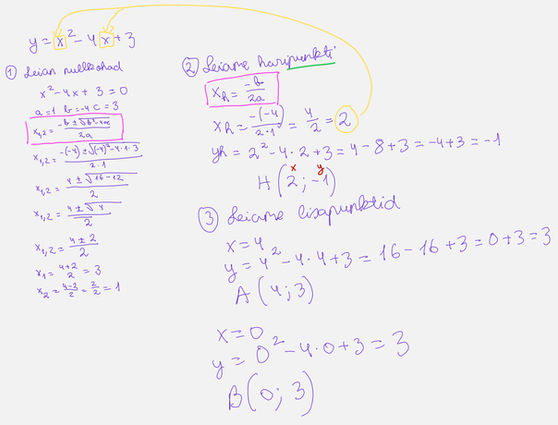 y = x² - 4x + 3
① Leian nullkohad
x² - 4x + 3 = 0
a=1 b=-4 c=3
x₁,₂ = (-b ± √(b²-4ac))/2a
x₁,₂ = (-(-4) ± √((-4)²-4·1·3))/(2·1)
x₁,₂ = (4 ± √(16-12))/2
x₁,₂ = (4 ± √4)/2
x₁,₂ = (4 ± 2)/2
x₁ = (4+2)/2 = 3
x₂ = (4-2)/2 = 2/2 = 1
② Leiame haripunkti
xh = -b/2a
xh = -(-4)/(2·1) = 4/2 = 2
yh = 2² - 4·2 + 3 = 4 - 8 + 3 = -4 + 3 = -1
x y
H (2; -1)
③ Leiame lisapunktid
x = 4
y = 4² - 4·4 + 3 = 16 - 16 + 3 = 0 + 3 = 3
A (4; 3)
x = 0
y = 0² - 4·0 + 3 = 3
B (0; 3)